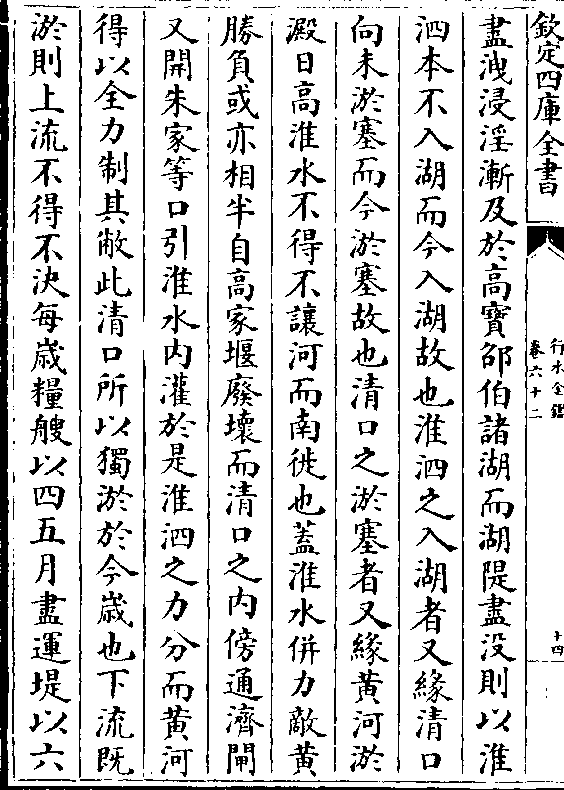 欽定四庫全書
行水金鑑
卷六十二
十四
盡洩浸淫漸及於高寶邵伯諸湖而湖隄盡没則以淮
泗本不入湖而今入湖故也淮泗之入湖者又緣清口
向未淤塞而今淤塞故也清口之淤塞者又緣黃河淤
澱日高淮水不得不讓河而南徙也蓋淮水併力敵黃
勝負或亦相半自高家堰廢壞而清口之内傍通濟閘
又開朱家等口引淮水内灌於是淮泗之力分而黃河
得以全力制其敝此清口所以獨淤於今歲也下流既
淤則上流不得不決每歲糧艘以四五月盡運堤以六